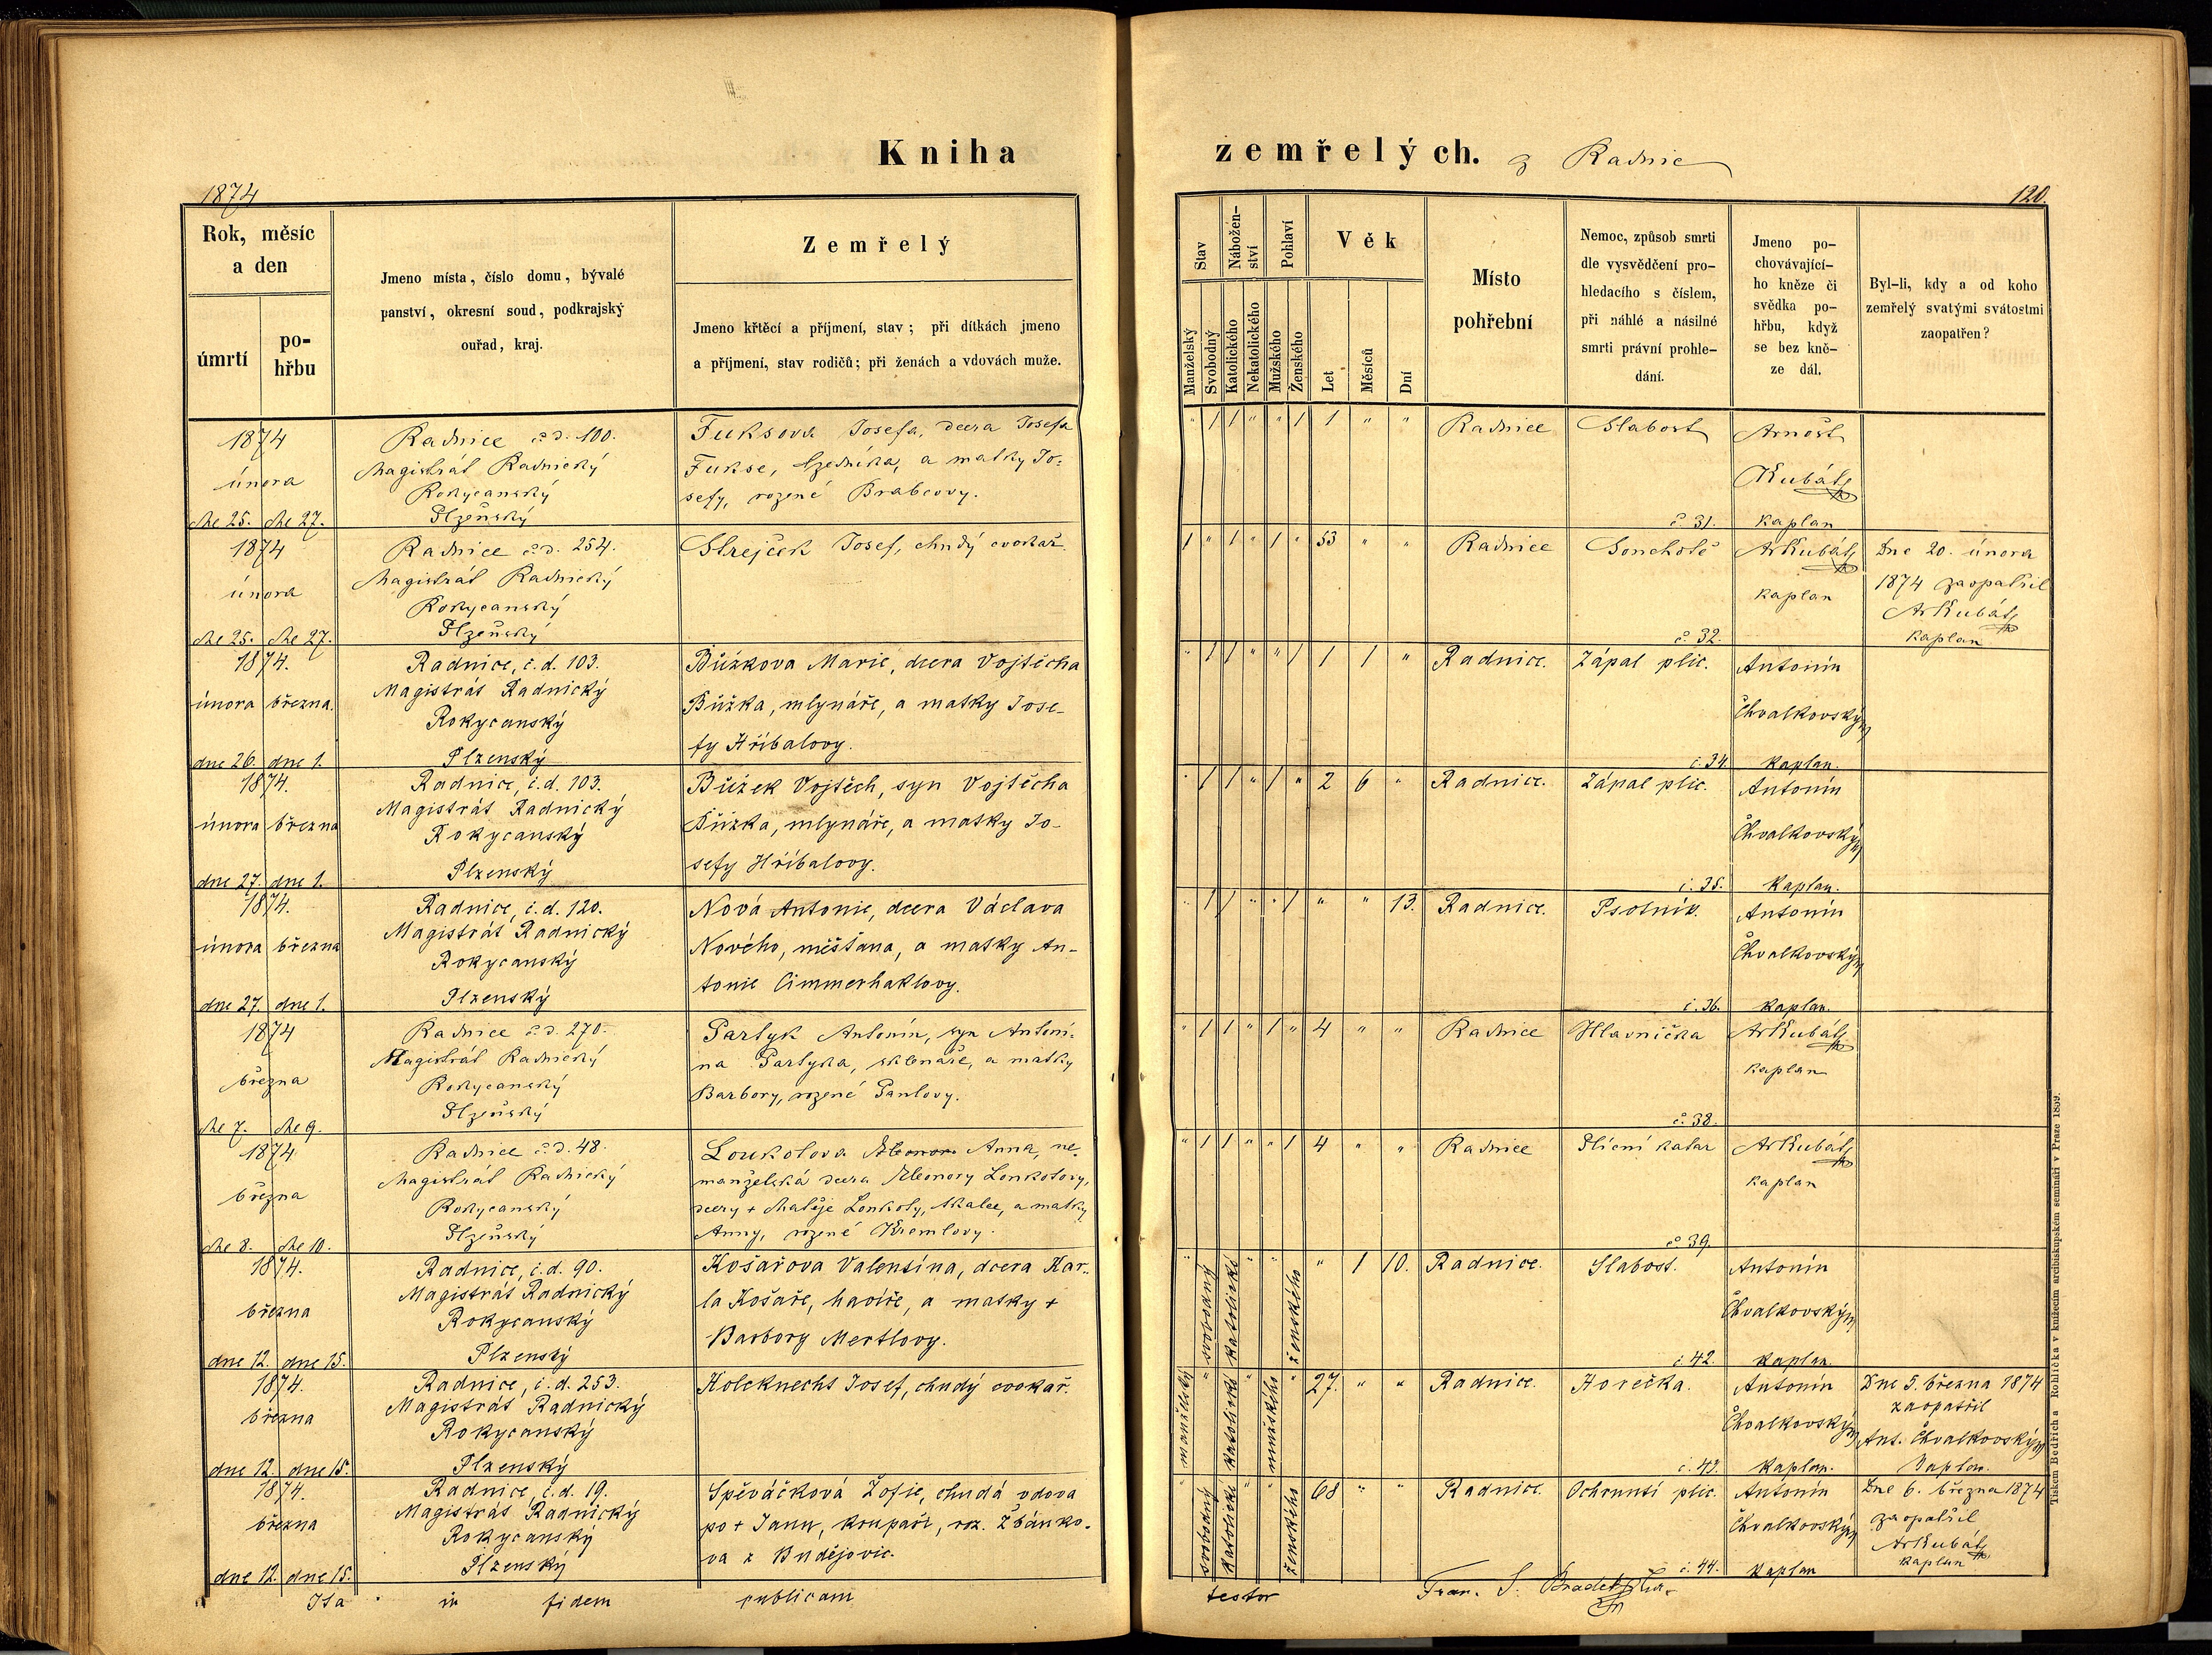 Kniha zemřelých. z Radnic
1874
120.
Rok, měsíc
a den
úmrtí
po-
hřbu
Jmeno místa, číslo domu, bývalé
panství, okresní soud, podkrajský
ouřad, kraj.
Zemřelý
Jmeno křtěcí a příjmení, stav; při dítkách jmeno
a příjmení, stav rodičů; při ženách a vdovách muže.
Stav
Manželský
Svobodný
Nábožen-
ství
Katolického
Nekatolického
Pohlaví
Mužského
Ženského
Věk
Let
Měsíců
Dní
Místo
pohřební
Nemoc, způsob smrti
dle vysvědčení pro-
hledacího s číslem,
při náhlé a násilné
smrti právní prohle-
dání.
Jmeno po-
chovávající-
ho kněze či
svědka po-
hřbu, když
se bez kně-
ze dál.
Byl-li, kdy a od koho
zemřelý svatými svátostmi
zaopatřen?
1874
února
dne 25. dne 27.
Radnice č.d. 100.
Magistrát Radnický
Rokycanský
Plzeňský
Fuksova Josefa, dcera Josefa
Fukse, a matky Jo-
sefy, rozené Brabcovy.
" 1 1 " " 1 1 " "
Radnice
Slabost
č. 31.
Arnošt
Kubát
kaplan
1874
února
dne 25. dne 27.
Radnice č.d. 254.
Magistrát Radnický
Rokycanský
Plzeňský
Strejček Josef, chudý cvokař.
1 " 1 " 1 " 53 " "
Radnice
Souchotě
č. 32.
Ar Kubát
kaplan
Dne 20. února
1874 zaopatřil
Ar Kubát
kaplan
1874.
února března.
dne 26. dne 1.
Radnice, č.d. 103.
Magistrát Radnický
Rokycanský
Plzenský
Bůžkova Marie, dcera Vojtěcha
Bůžka, mlynáře, a matky Jose-
fy Hříbalovy.
" 1 1 " " 1 1 1 "
Radnice.
Zápal plic.
č. 34.
Antonín
Chvalkovský
kaplan.
1874.
února března
dne 27. dne 1.
Radnice, č.d. 103.
Magistrát Radnický
Rokycanský
Plzenský
Bůžek Vojtěch, syn Vojtěcha
Bůžka, mlynáře, a matky Jo-
sefy Hříbalovy.
" 1 1 " 1 " 2 6 "
Radnice.
Zápal plic.
č. 35.
Antonín
Chvalkovský
kaplan.
1874.
února března
dne 27. dne 1.
Radnice, č.d. 120.
Magistrát Radnický
Rokycanský
Plzenský
Nová Antonie, dcera Václava
Nového, měšťana, a matky An-
tonie Cimmerhaklovy.
" 1 1 " " 1 " " 13.
Radnice.
Psotník.
č. 36.
Antonín
Chvalkovský
kaplan.
1874
března
dne 7. dne 9.
Radnice č.d. 270.
Magistrát Radnický
Rokycanský
Plzeňský
Partyk Antonín, syn Antoní-
na Partyka, sklenáře, a matky
Barbory, rozené Pavlovy.
" 1 1 " 1 " 4 " "
Radnice
Hlavnička
č. 38.
Ar Kubát
kaplan
1874
března
dne 8. dne 10.
Radnice č.d. 48.
Magistrát Radnický
Rokycanský
Plzeňský
Loukotova Anna, ne-
manželská dcera Eleonory Loukotovy,
dcery + Matěje Loukoty, tkalce, a matky
Anny, rozené Kremlovy.
" 1 1 " " 1 4 " "
Radnice
Plicní katar
č. 39.
Ar Kubát
kaplan
1874.
března
dne 12. dne 15.
Radnice, č.d. 90.
Magistrát Radnický
Rokycanský
Plzenský
Košařova Valentina, dcera Kar-
la Košaře, havíře, a matky +
Barbory Mertlovy.
" svobodný katolický " " ženského " 1 10.
Radnice.
Slabost.
č. 42.
Antonín
Chvalkovský
kaplan.
1874.
března
dne 12. dne 15.
Radnice, č.d. 253.
Magistrát Radnický
Rokycanský
Plzenský
Holcknecht Josef, chudý cvokař.
manželský " katolický " mužského " 27. " "
Radnice.
Horečka.
č. 43.
Antonín
Chvalkovský
kaplan.
Dne 5. března 1874
zaopatřil
Ant. Chvalkovský
kaplan.
1874.
března
dne 12. dne 15.
Radnice, č.d. 19.
Magistrát Radnický
Rokycanský
Plzenský
Spěváčková Žofie, chudá vdova
po + Janu, krupaři, roz. Žbánko-
va z Budějovic.
" svobodný katolický " " ženského 68 " "
Radnice.
Ochrnutí plic.
č. 44.
Antonín
Chvalkovský
kaplan
Dne 6. března 1874
zaopatřil
Ar Kubát
kaplan
Ita in fidem publicam testor
Fran. S.
Tiskem Bedřich a Rohlíčka v knížecím arcibiskupském semináři v Praze 1859.